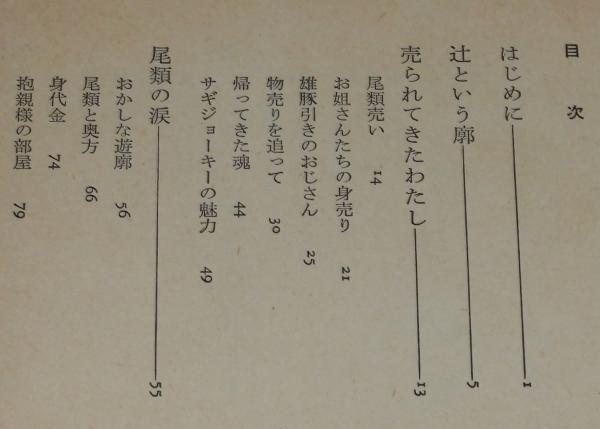 目次
はじめに 1
辻という廓 5
売られてきたわたし 13
尾類売い 14
お姐さんたちの身売り 21
雄豚引きのおじさん 25
物売りを追って 30
帰ってきた魂 44
サギジョーキーの魅力 49
尾類の涙 55
おかしな遊廓 56
尾類と奥方 66
身代金 74
抱親様の部屋 79